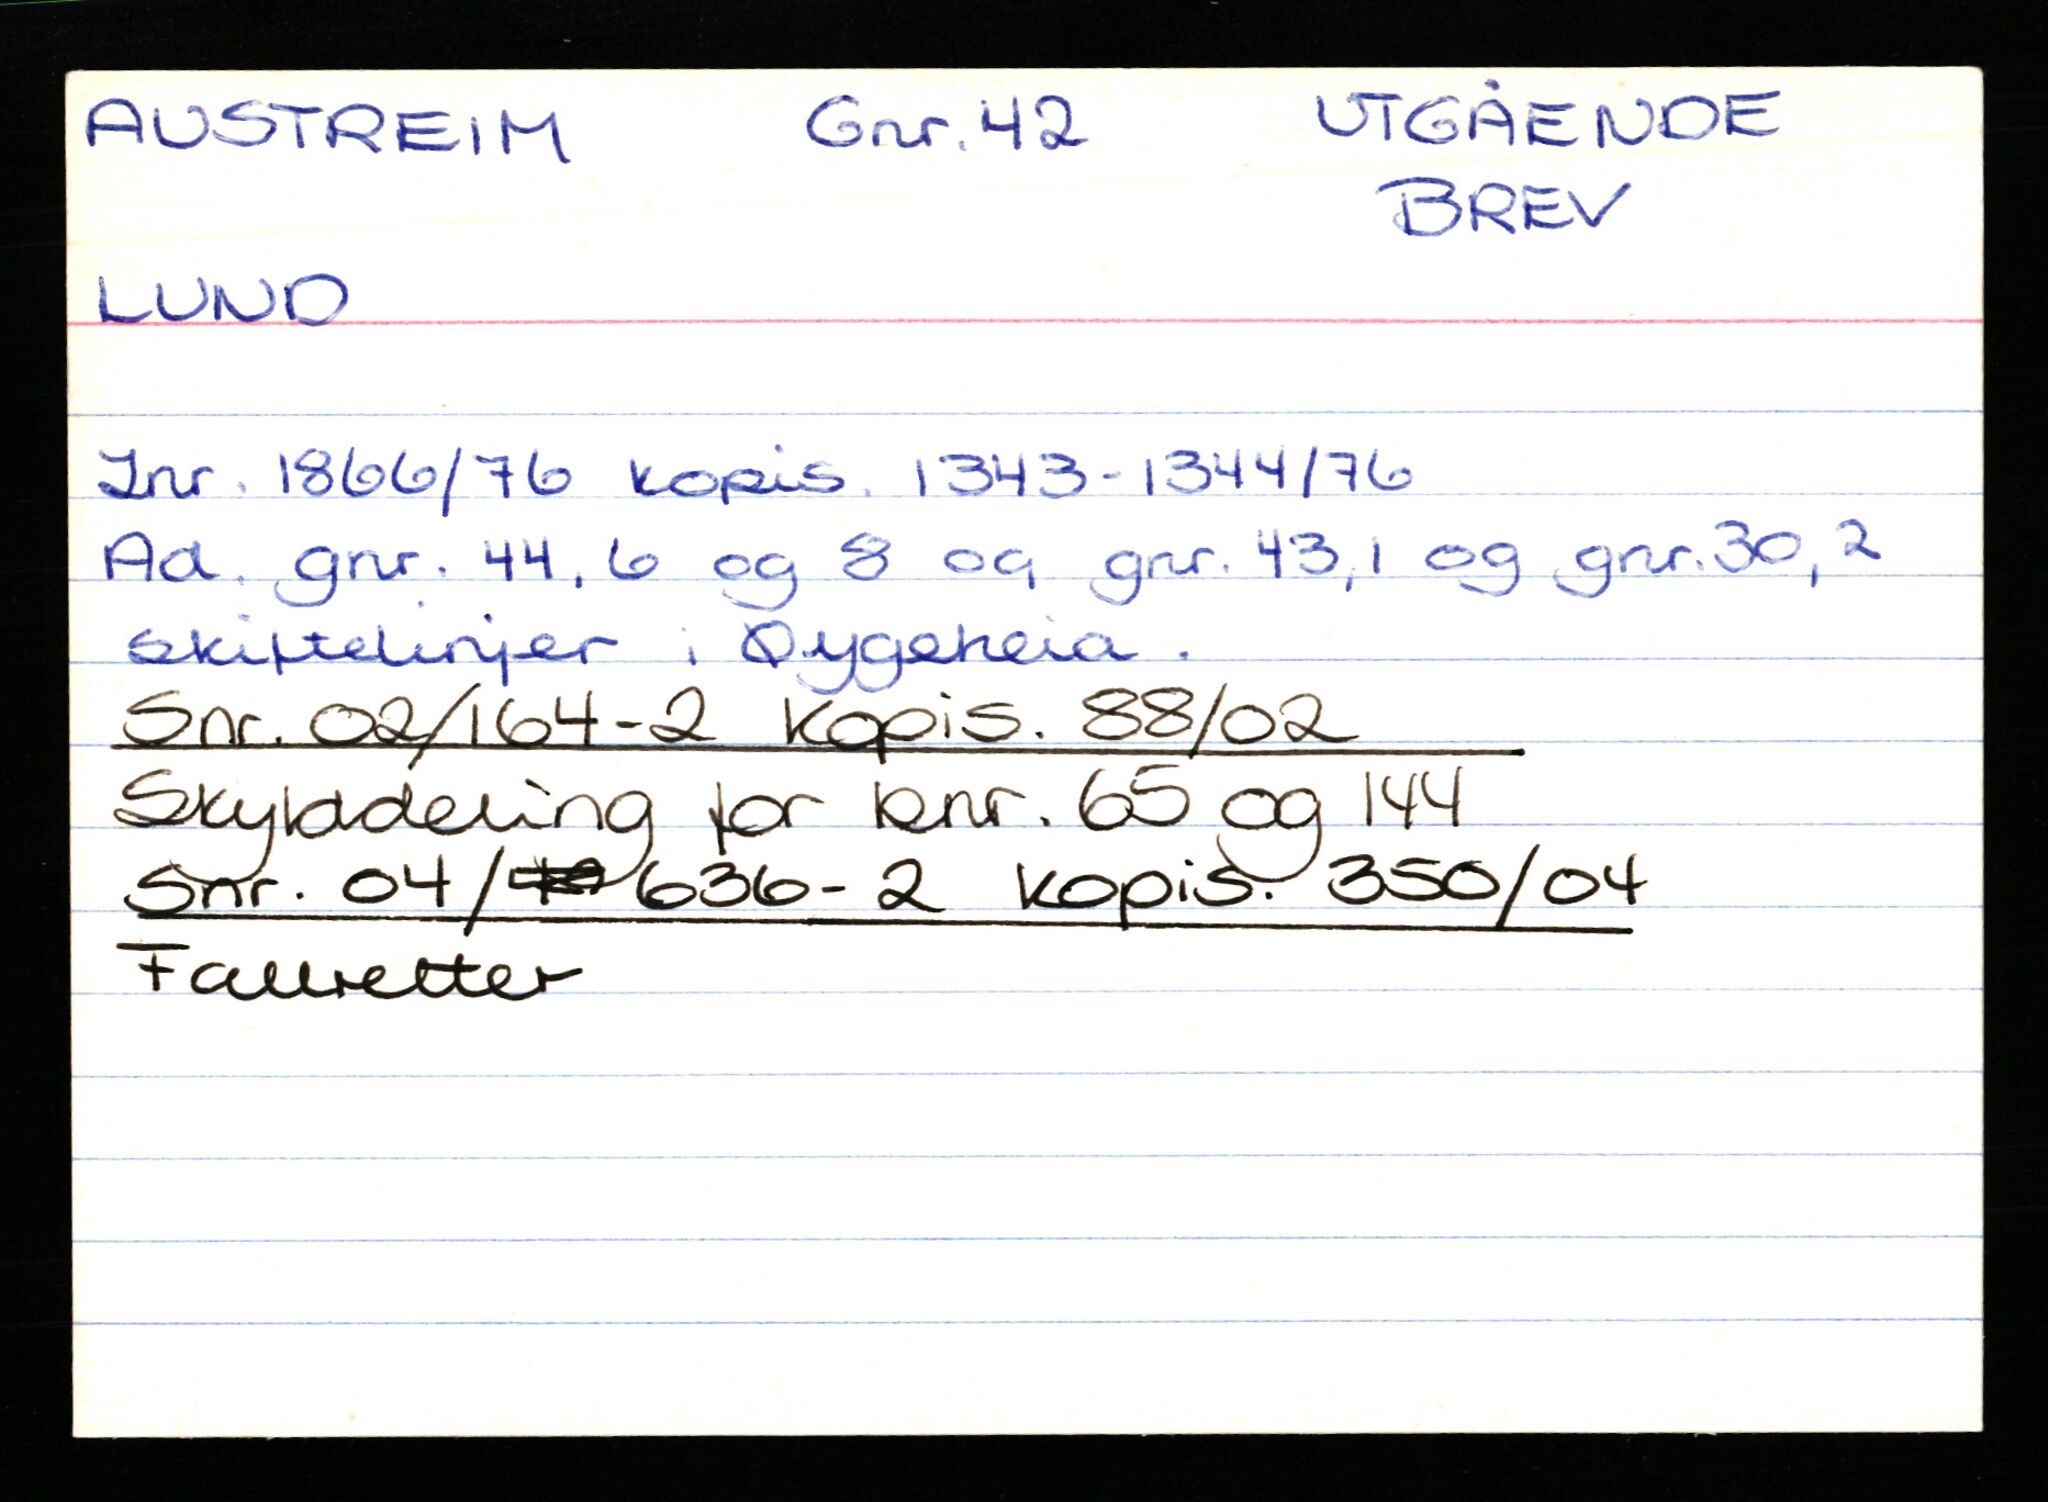 AUSTREIM Gnr. 42 UTGÅENDE
BREV
LUND
Jnr. 1866/76 kopis. 1343-1344/76
Ad. gnr. 44, 6 og 8 og gnr. 43, 1 og gnr. 30, 2
skiftelinjer i Øygeheia.
Snr. 02/164-2 Kopis. 88/02
Skylddeling for bnr. 65 og 144
Snr. 04/ 636-2 kopis. 350/04
Fallretter